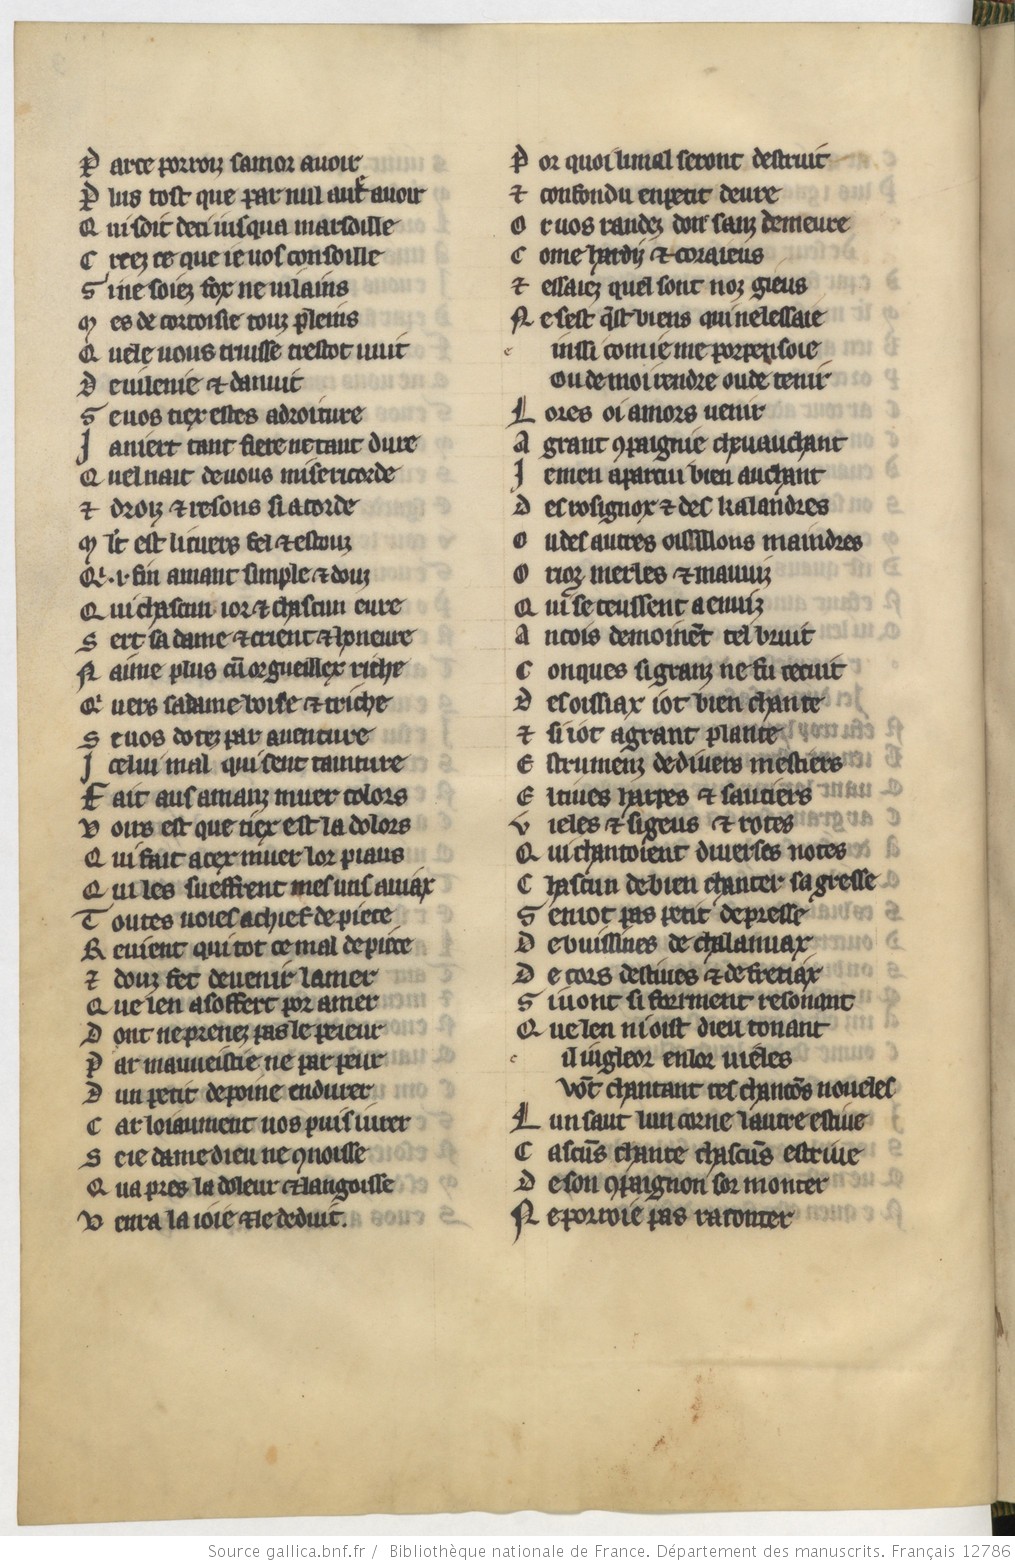 P arce porroiz samor avoir
P lus tost que par nul autre avoir
Q ui soit deci iusqua marsoille
C reez ce que ie vos consoille
S i ne soiez fox ne vilains
M es de cortoisie touz pleins
Q uele vous truisse trestot vuit
D e vilenie et danuit
S e vos tiex estes a droiture
J a niert tant fiere ne tant dure
Q uel nait de vous misericorde
et droiz et resons si acorde
M lt est li cuers fel et estouz
Q .i. fin amant simple et douz
Q ui chascun ior et chascun eure
S ert sa dame et crient et honeure
N aime plus cun orgueillex riche
Q vers sa dame boise et triche
S e vos dotez par aventure
J celui mal qui sent tainture
F ait aus amanz muer colors
V oirs est que tiex est la dolors
Q ui fait a cex muer lor piaus
Q ui les sueffrent mes uns aviax
T outes voies a chief de piece
R evient qui tot ce mal depiece
et douz fet devenir lamer
Q ue len a soffert por amer
D ont ne prenez pas le peieur
P ar mauveistie ne par peur
D un petit de poine endurer
C ar loiaument vos puis iurer
S eie dame dieu ne conoisse
Q va pres la doleur et langoisse
V enra la ioie et le deduit.
P or quoi li mal seront destruit
et confondu en petit deure
O r vos randez donc sanz demeure
C ome hardiz et coraieus
et essaiez quel sont noz gieus
N e sest quest biens qui nelessaie
e inssi com ie me porpensoie
Ou de moi rendre ou de tenir
L ores oi amors venir
A grant compaignie chevauchant
J e men aparcu bien au chant
D es rosignox et des kalandres
O u des autres oissillons maindres
O rioz merles et mauviz
Q ui se teussent a enviz
A ncois demoinent tel bruit
C onques si granz ne fu tecuit
D es oissiax iot bien chante
et si iot a grant plante
E strumenz de divers mestiers
E stives harpes et sautiers
V ieles et sigeus et rotes
Q ui chantoient diverses notes
C hascun de bien chanter sa gresse
S en iot pas petit de presse
D e buissines de chalamiax
D e cors destives et de fretiax
S i vont si forment resonant
Q ue len ni oist dieu tonant
c il iugleor en lor vieles
Vont chantant ces chancons noveles
L un saut lun corne lautre estive
C ascuns chante chascuns estrive
D e son compaignon sormonter
N e porroie pas raconter
Source gallica.bnf.fr / Bibliothèque nationale de France. Département des manuscrits. Français 12786